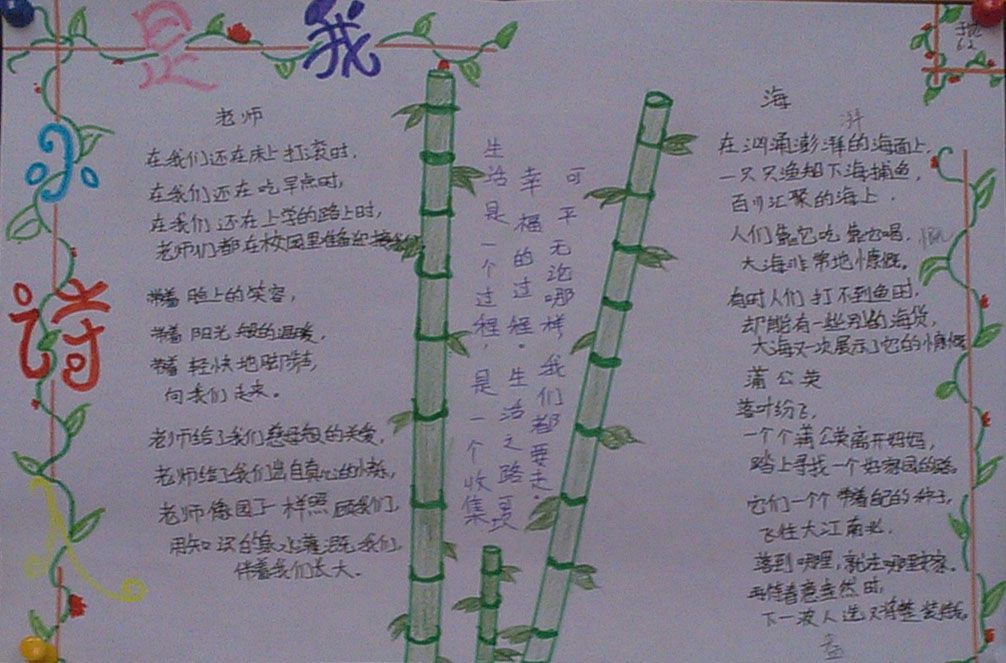 我是
小诗
老师
在我们还在床上打滚时，
在我们还在吃早点时，
在我们还在上学的路上时，
老师们都在校园里准备迎接我们
带着脸上的笑容，
带着阳光般的温暖，
带着轻快地脚步，
向我们走来。
老师给了我们慈母般的关爱，
老师给了我们出自真心的
老师像园丁一样照顾我们，
用知识的泉水灌溉我们，
伴着我们长大。
生活是一个过程，是一个收集
幸福的过程。生活之路
可
平
无论哪样，我们都要走。
海
湃
在汹涌澎湃的海面上，
一只只渔船下海捕鱼，
百川汇聚的海上，
人们靠它吃靠它喝，
慨
大海非常地慷慨。
有时人们打不到鱼时，
却能有一些别的海货，
大海又一次展示了它的慷慨
蒲公英
落叶纷飞，
一个个蒲公英离开妈妈，
踏上寻找一个好家园的路。
它们一个个带着自己的种子，
飞往大江南北。
落到哪里，就在哪里安家。
再待春意盎然时，
下一波人选又将整装待